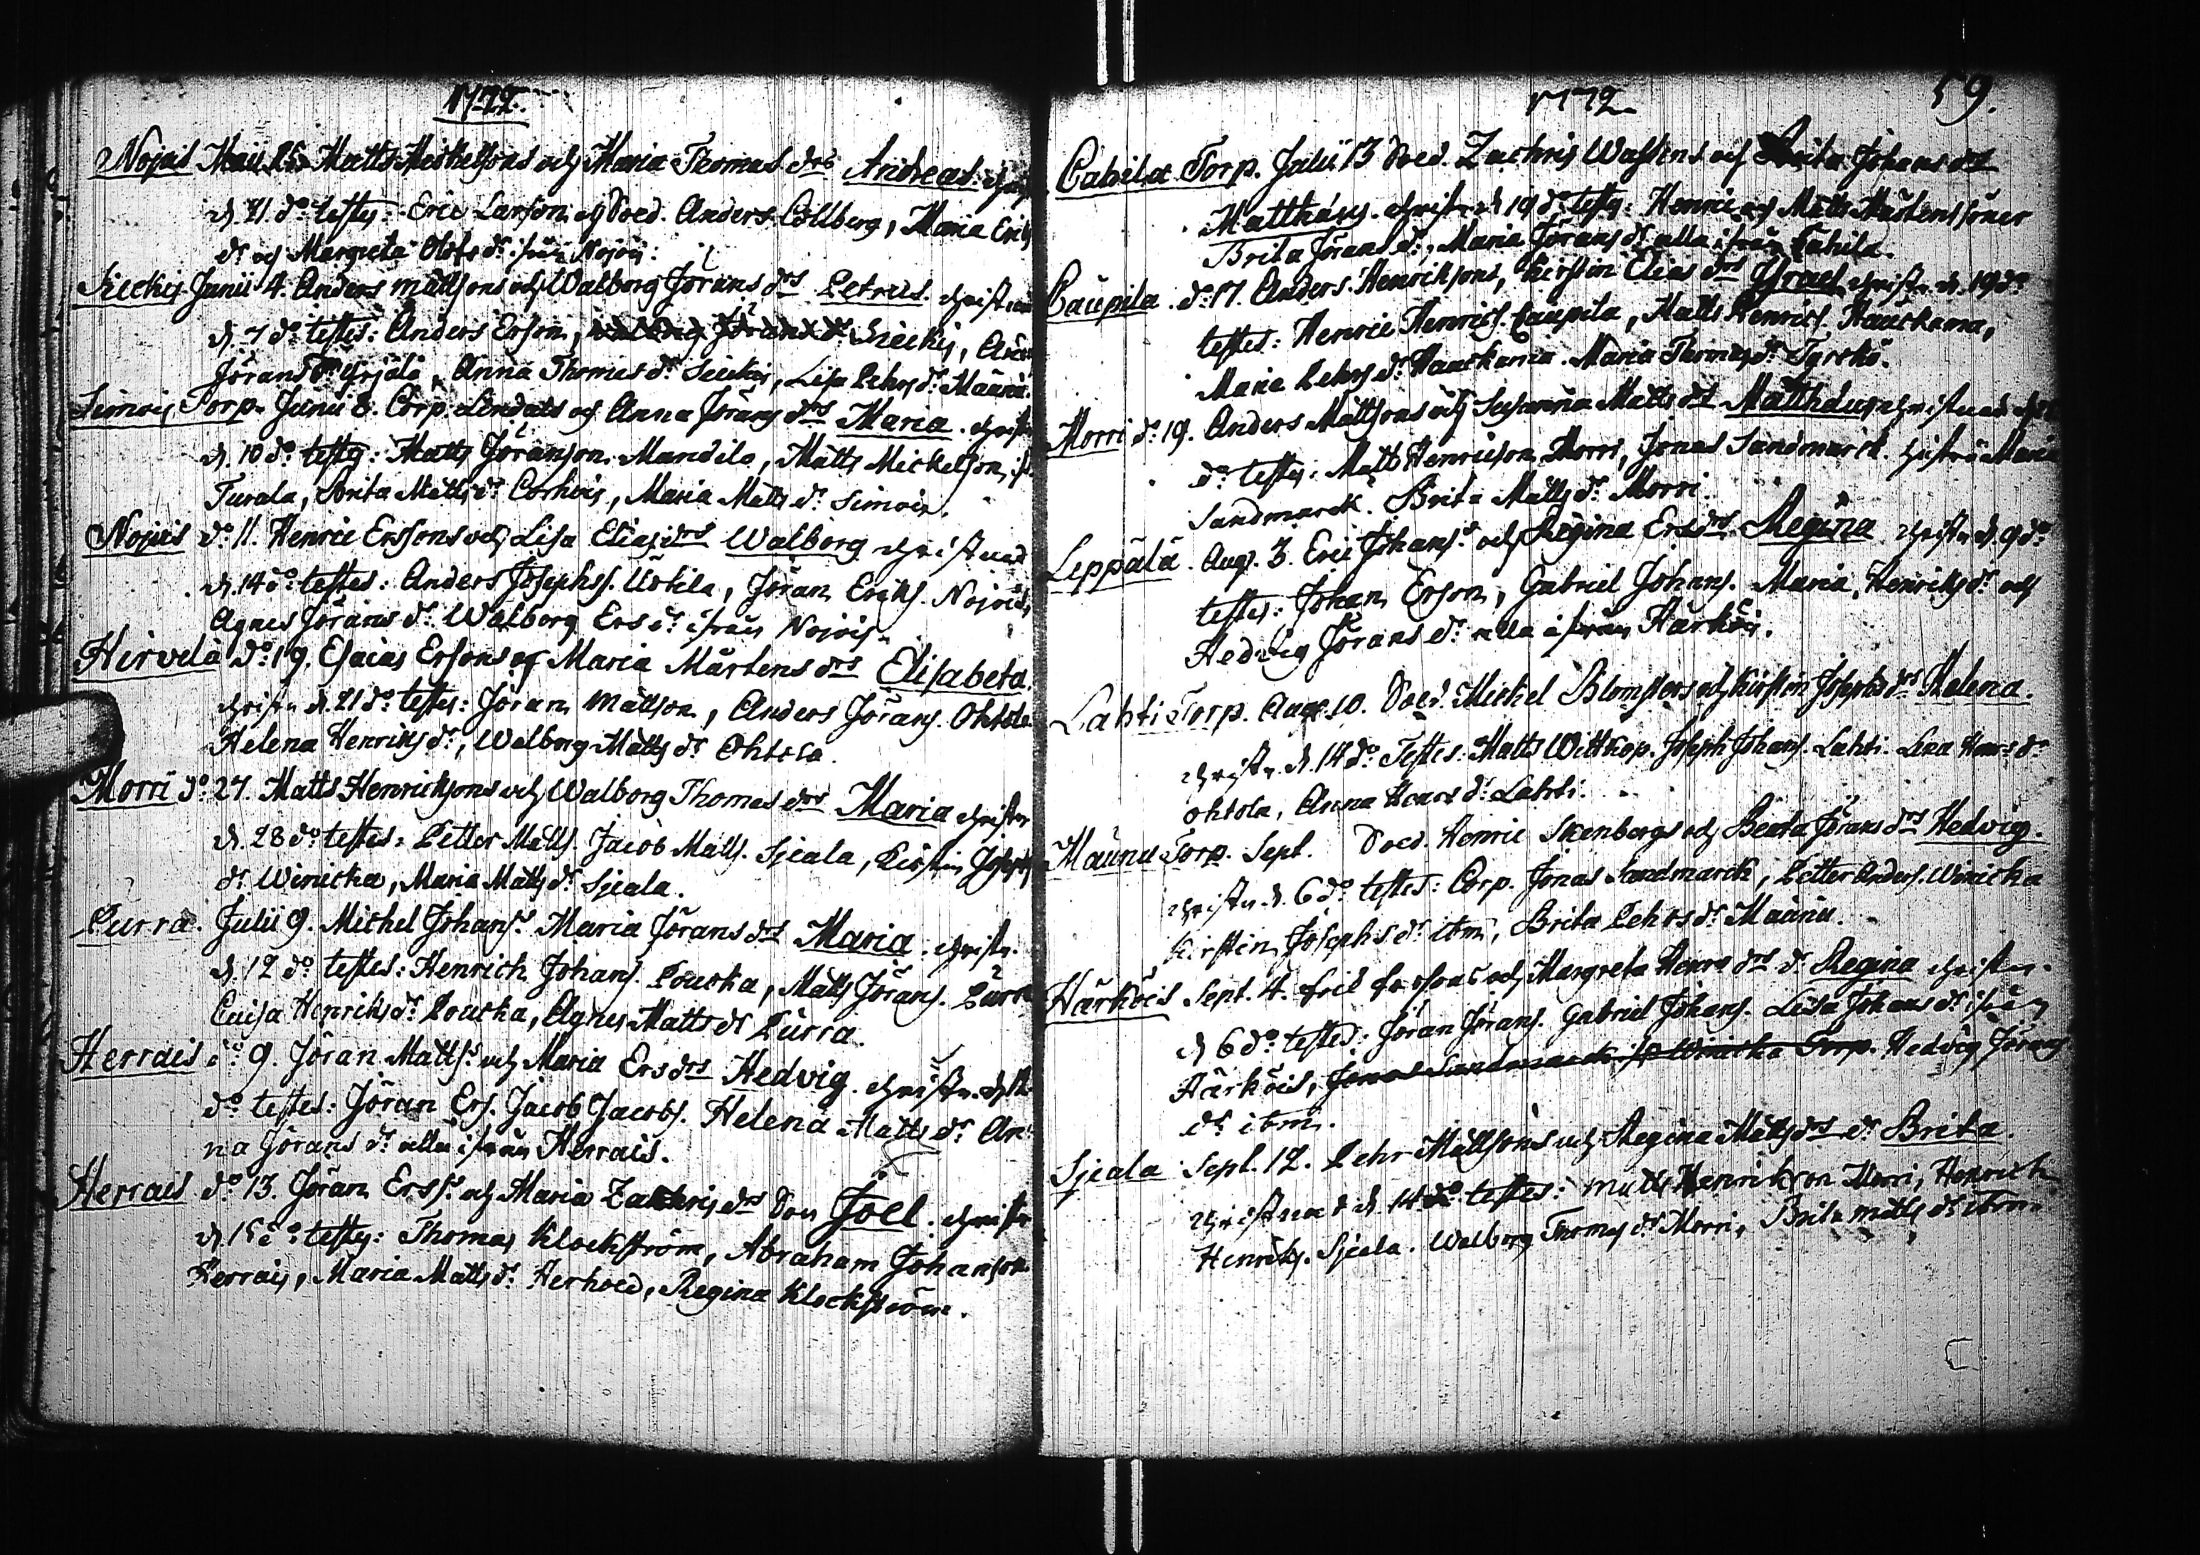 1772
Nojois Maii 25 Matts Mickelsons och Maria Thomas drs Andreas. christ
d. 31 do testes: Eric Larson och Sold. Anders Collberg, Maria Erics
dr och Margreta Olofs dr ifrån Nojois.
Sieckis Junii 4. Anders Mattsons och Walborg Jörans drs Petrus. christnad
d. 7 do testes: Anders Erson, Sieckis,
Jörans dr Yrjälä, Anna Thomas dr Sieckis, Lisa Pehrs dr Maunu.
Simois Torp. Junii 8. Corp. Lindals och Anna Jörans drs Maria. christn
d. 10 do testes: Matts Jöranson Mandila, Matts Mickelson
Turala, Brita Matts dr Corhois, Maria Matts dr Simois.
Nojois do 11. Henric Ersons och Lisa Elias drs Walborg christnad
d. 14 do testes: Anders Josephs. Uotila, Jöran Ericks. Nojois,
Agnes Jörans dr Walborg Ers dr ifrån Nojois.
Hirvelä do 19. Esaias Ersons och Maria Mårtens drs Elisabeta.
christn d. 21 do testes: Jöran Mattson, Anders Jörans. Ohtola
Helena Henriks dr, Walborg Matts dr Ohtola.
Morri do 27. Matts Henricksons och Walborg Thomas drs Maria christn
d. 28 do testes: Petter Matts. Jacob Matts. Sjeala, Kirstin Josephs
dr Winicka, Maria Matts dr Sjeala.
Purra. Julii 9. Michel Johans. Maria Jörans drs Maria. christn.
d. 12 do testes: Henrich Johans. Poucka, Matts Jörans. Purra
Caisa Henriks dr Poucka, Agnes Matts dr Purra.
Herrais do 9. Jöran Matts. och Maria Ers drs Hedvig. christn.
do testes: Jöran Ers. Jacob Jacobs. Helena Matts dr An
na Jörans dr alla ifrån Herrais.
Herrais do 13. Jöran Erss. och Maria Zachris drs Son Joel. christn
d. 15 do testes: Thomas Klockström, Abraham Johanson
Herrais, Maria Matts dr Herhoed, Regina Klockström.
1772 59.
Cahila Torp. Julii 13 Sold. Zachris Wassens och Brita Johans drs
Matthæus. christn d. 19 do testes: Henric och Matts Mårtenssöner
Brita Jörans dr, Maria Jörans dr alla ifrån Cahila.
Caupila do 17. Anders Henriksons, Kirstin Elias drs Israel christn. d. 19 do
testes: Henric Henrics. Caupila, Matts Henrics. Hauckama,
Maria Pehrs dr Hauckama. Maria Thomas dr Tyrckö.
Morri do 19. Anders Mattsons och Susanna Matts drs Matthæus christnad
do testes: Matts Henricson Morri, Jonas Sandmarck. hustru Maria
Sandmarck. Brita Matts dr Morri.
Leppälä Aug. 3. Eric Johans. och Regina Ers drs Regina christn d. 9 do
testes: Johan Erson, Gabriel Johans. Maria Henriks dr och
Hedvig Jörans dr alla ifrån Härköis.
Lahti Torp. Aug. 10. Sold. Michel Blomsters och Kirstin Josephs drs Helena.
christn. d. 14 do Testes: Matts Wittkop. Joseph Johans. Lahti. Lena Henrs dr
Ohtola, Anna Henrs dr Lahti.
Maunu Torp. Sept. Sold. Henric Stenbergs och Beata Jörans drs Hedvig.
christn. d. 6 do testes: Corp. Jonas Sandmarck, Petter Anders. Winicka
Kirstin Josephs dr ibm, Brita Pehrs dr Maunu.
Härköis Sept. 4. Eric Ersons och Margreta Henrs drs dr Regina christn.
d. 6 do testes: Jöran Jörans. Gabriel Johans. Lisa Johans dr ifrån
Härköis, Jonas Sandmarck ifr Winicka Torp. Hedvig Jörans
dr ibm.
Sjeala Sept. 12. Pehr Mattsons och Regina Matts drs dr Brita.
christnat d. 14 do testes: Matts Henrickson Morri, Henrich
Henriks. Sjeala. Walborg Thomas dr Morri, Brita Matts dr ibm.